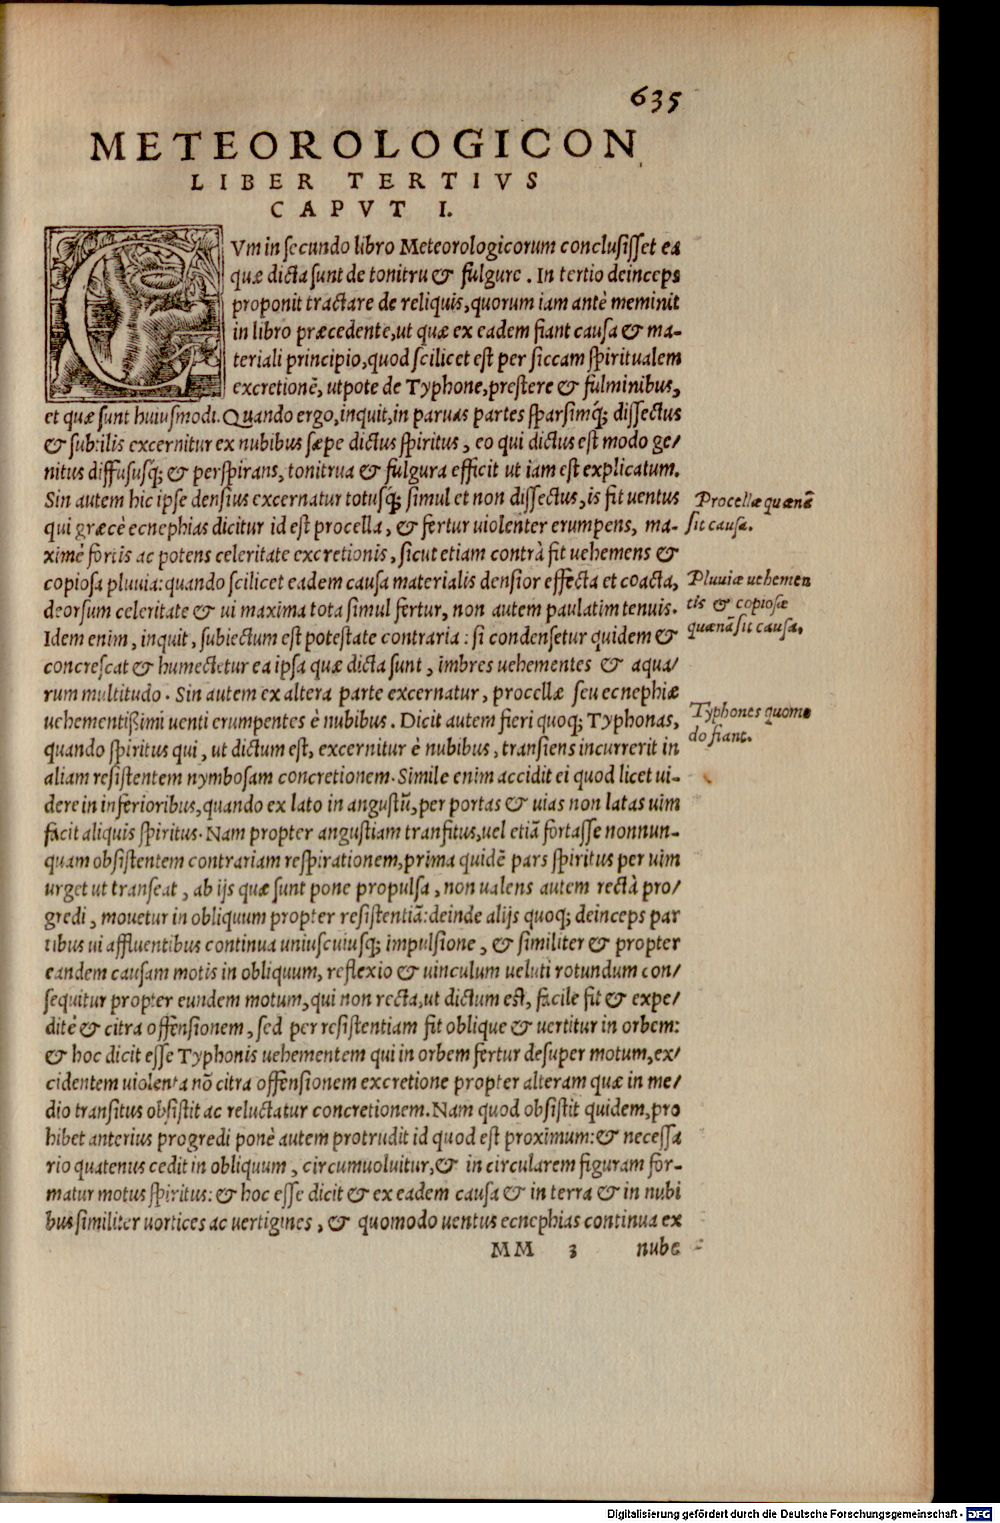 635
METEOROLOGICON
LIBER TERTIVS
CAPVT I.
CVm in secundo libro Meteorologicorum conclusisset ea
quæ dicta sunt de tonitru & fulgure. In tertio deinceps
proponit tractare de reliquis, quorum iam antè meminit
in libro præcedente, ut quæ ex eadem fiant causa & ma-
teriali principio, quod scilicet est per siccam spiritualem
excretionē, utpote de Typhone, prestere & fulminibus,
et quæ sunt huiusmodi. Quando ergo, inquit, in paruas partes sparsimq́; dissectus
& subtilis excernitur ex nubibus sæpe dictus spiritus, eo qui dictus est modo ge/
nitus diffususq́; & perspirans, tonitrua & fulgura efficit ut iam est explicatum.
Sin autem hic ipse densius excernatur totusq́; simul et non dissectus, is fit uentus
qui græcè ecnephias dicitur id est procella, & fertur uiolenter erumpens, ma-
ximè fortis ac potens celeritate excretionis, sicut etiam contrà fit uehemens &
copiosa pluuia: quando scilicet eadem causa materialis densior effecta et coacta,
deorsum celeritate & ui maxima tota simul fertur, non autem paulatim tenuis.
Idem enim, inquit, subiectum est potestate contraria: si condensetur quidem &
concrescat & humectetur ea ipsa quæ dicta sunt, imbres uehementes & aqua/
rum multitudo. Sin autem ex altera parte excernatur, procellæ seu ecnephiæ
uehementißimi uenti erumpentes è nubibus. Dicit autem fieri quoq; Typhonas,
quando spiritus qui, ut dictum est, excernitur è nubibus, transiens incurrerit in
aliam resistentem nymbosam concretionem. Simile enim accidit ei quod licet ui-
dere in inferioribus, quando ex lato in angustū, per portas & uias non latas uim
facit aliquis spiritus. Nam propter angustiam transitus, uel etiā fortasse nonnun-
quam obsistentem contrariam respirationem, prima quidē pars spiritus per uim
urget ut transeat, ab ijs quæ sunt pone propulsa, non ualens autem rectà pro/
gredi, mouetur in obliquum propter resistentiā: deinde alijs quoq; deinceps par
tibus ui affluentibus continua uniuscuiusq; impulsione, & similiter & propter
eandem causam motis in obliquum, reflexio & uinculum ueluti rotundum con/
sequitur propter eundem motum, qui non recta, ut dictum est, facile fit & expe/
ditè & citra offensionem, sed per resistentiam fit oblique & uertitur in orbem:
& hoc dicit esse Typhonis uehementem qui in orbem fertur desuper motum, ex/
cidentem uiolenta nō citra offensionem excretione propter alteram quæ in me/
dio transitus obsistit ac reluctatur concretionem. Nam quod obsistit quidem, pro
hibet anterius progredi ponè autem protrudit id quod est proximum: & necessa
rio quatenus cedit in obliquum, circumuoluitur, & in circularem figuram for-
matur motus spiritus: & hoc esse dicit & ex eadem causa & in terra & in nubi
bus similiter uortices ac uertigines, & quomodo uentus ecnephias continua ex
MM 3 nube
Procellæ quænā
sit causa.
Pluuiæ uehemen
tis & copiosæ
quænā sit causa.
Typhones quomo
do fiant.
Digitalisierung gefördert durch die Deutsche Forschungsgemeinschaft - DFG